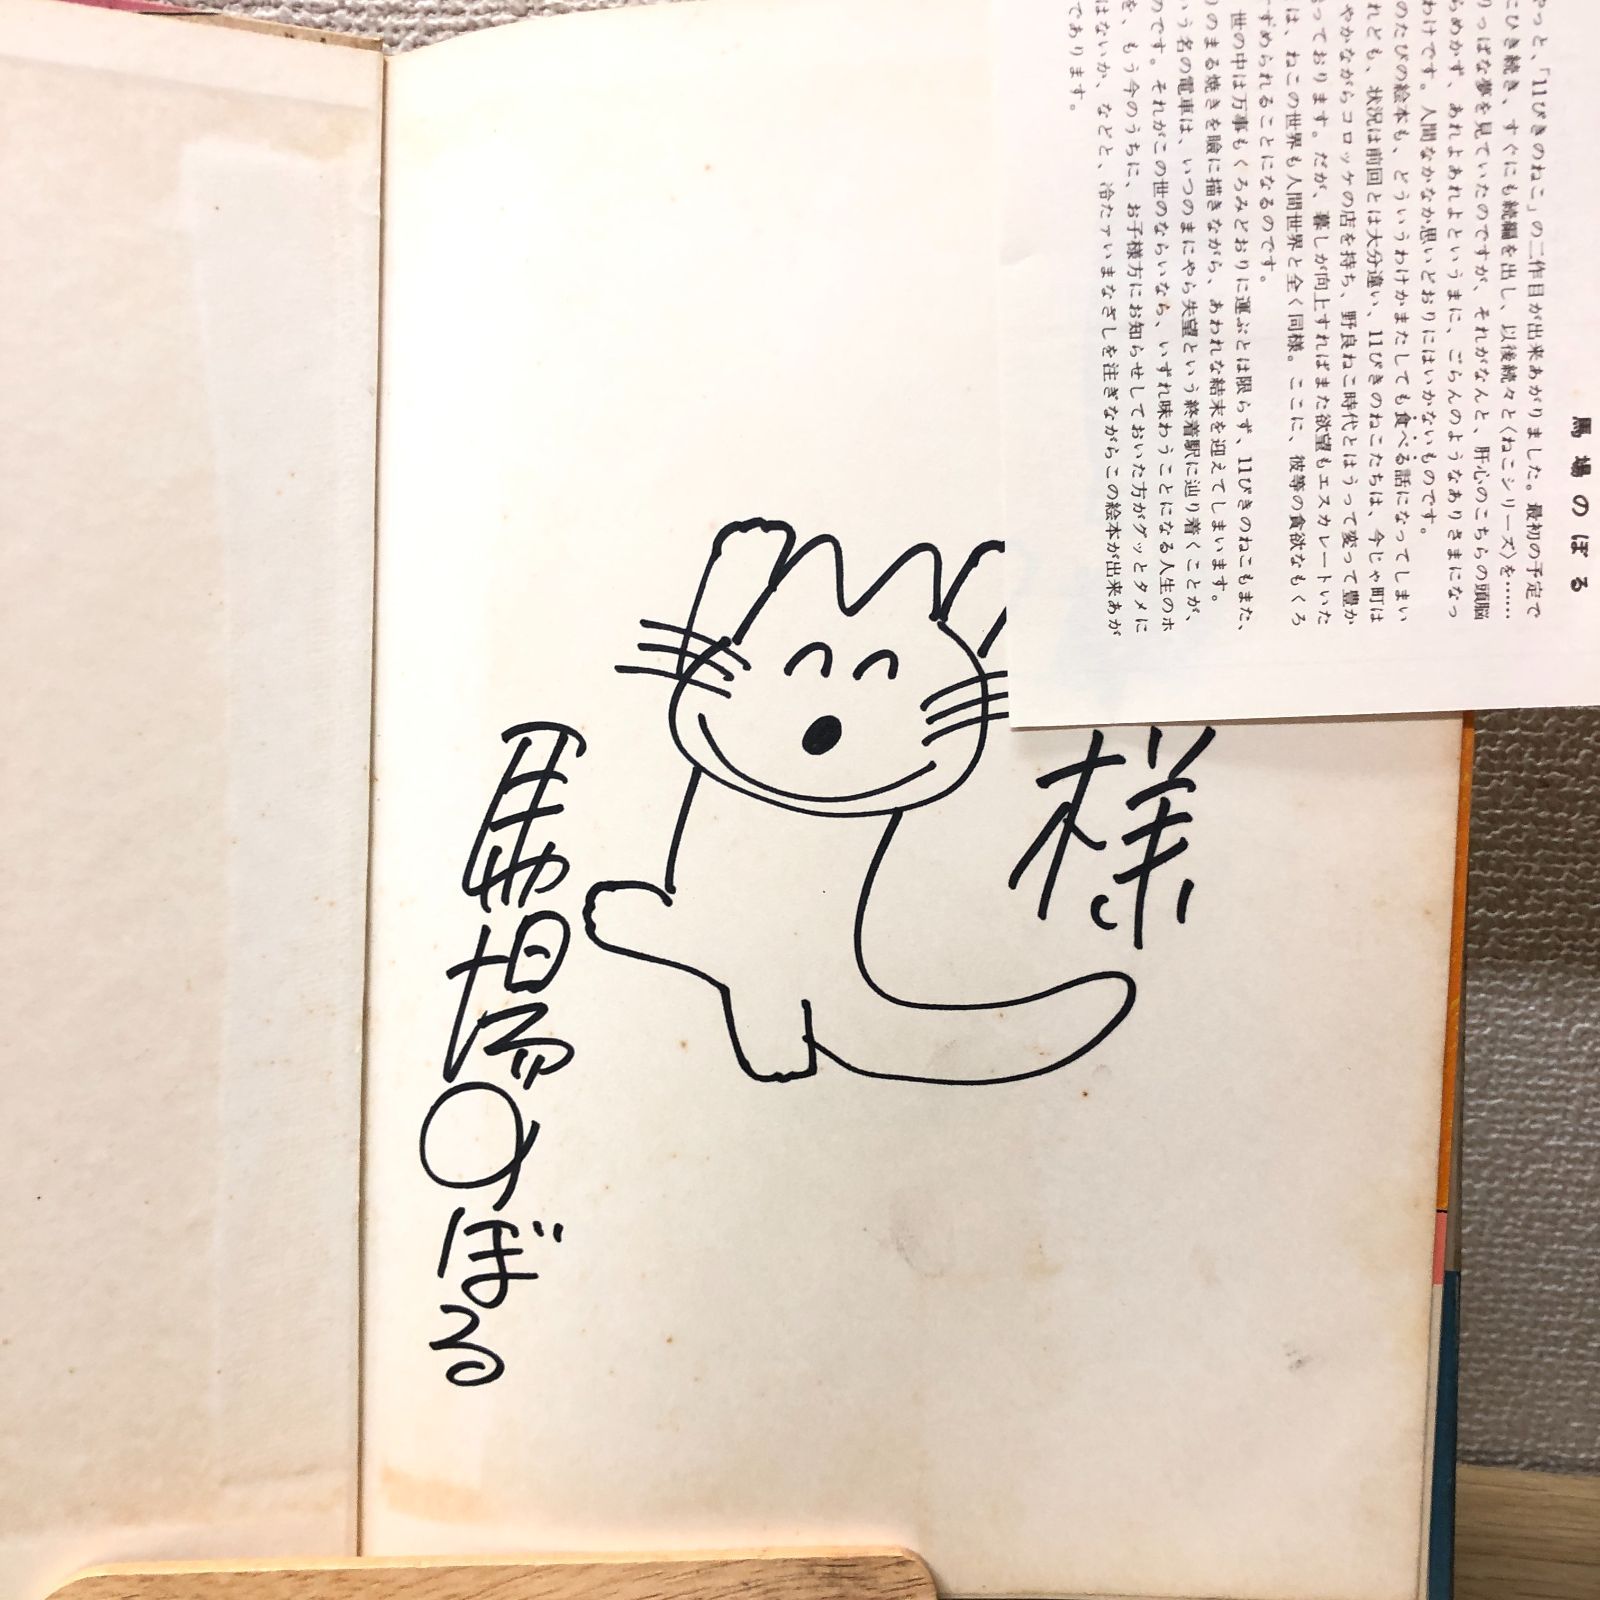 馬場のぼる
やっと、「11ぴきのねこ」の二作目が出来あがりました。最初の予定で
にひき続き、すぐにも続編を出し、以後続々と〈ねこシリーズ〉を……
りっぱな夢を見ていたのですが、それがなんと、肝心のこちらの頭脳
らめかず、あれよあれよというまに、ごらんのようなありさまになっ
わけです。人間なかなか思いどおりにはいかないものです。
のたびの絵本も、どういうわけかまたしても食べる話になってしまい
れども、状況は前回とは大分違い、11ぴきのねこたちは、今じゃ町は
やかながらコロッケの店を持ち、野良ねこ時代とはうって変って豊か
っております。だが、暮しが向上すればまた欲望もエスカレートいた
は、ねこの世界も人間世界と全く同様。ここに、彼等の貪欲なもくろ
すめられることになるのです。
世の中は万事もくろみどおりに運ぶとは限らず、11ぴきのねこもまた、
りのまる焼きを瞼に描きながら、あわれな結末を迎えてしまいます。
いう名の電車は、いつのまにやら失望という終着駅に辿り着くことが、
のです。それがこの世のならいなら、いずれ味わうことになる人生のホ
を、もう今のうちに、お子様方にお知らせしておいた方がグッとタメに
はないか、などと、冷たァいまなざしを注ぎながらこの絵本が出来あが
であります。
様
馬場のぼる